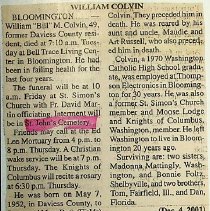 WILLIAM COLVIN
BLOOMINGTON
William "Bill" M. Colvin, 49,
former Daviess County resi-
dent, died at 7:10 a.m. Tues-
day at Bell Trace Living Center
in Bloomington. He had
been in failing health for the
last four years.
The funeral will be at 10
a.m. Friday at St. Simon's
Church with Fr. David Mar-
tin officiating. Interment will be
in St. John's Cemetery.
Friends may call at the Ed
Lee Mortuary from 4 p.m. to
8 p.m. Thursday. A Christian
wake service will be at 7 p.m.
Thursday. The Knights of
Columbus will recite a rosary
at 6:30 p.m. Thursday.
He was born on May 7,
1952, in Daviess County, to
Colvin. They preceded him in
death. He was reared by his
aunt and uncle, Maudie and
Art Russell, who also preced-
ed him in death.
Colvin, a 1970 Washington
Catholic High School gradu-
ate, was employed at Thomp-
son Electronics in Blooming-
ton for 30 years. He was also
a former St. Simon's Church
member and Moose Lodge
and Knights of Columbus,
Washington, member. He left
Washington to live in Bloom-
ington 20 years ago.
Surviving are: two sisters,
Madonna Mattingly, Wash-
ington, and Bonnie Foltz,
Shelbyville, and two brothers,
Tom, Fairfield, Ill., and Dan,
Florida.
(Dec. 4, 2001)